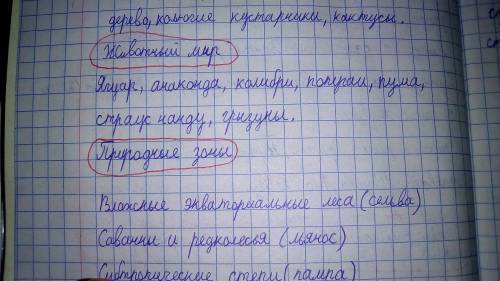 дерево, колючие кустарники, кактусы.
Животный мир
Ягуар, анаконда, колибри, попугаи, пума,
страус нанду, грызуны.
Природные зоны
Влажные экваториальные леса (сельва)
Саванны и редколесья (льянос)
Субтропические степи (пампа)